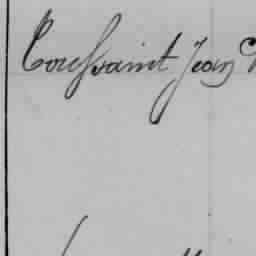 Toussaint Jean